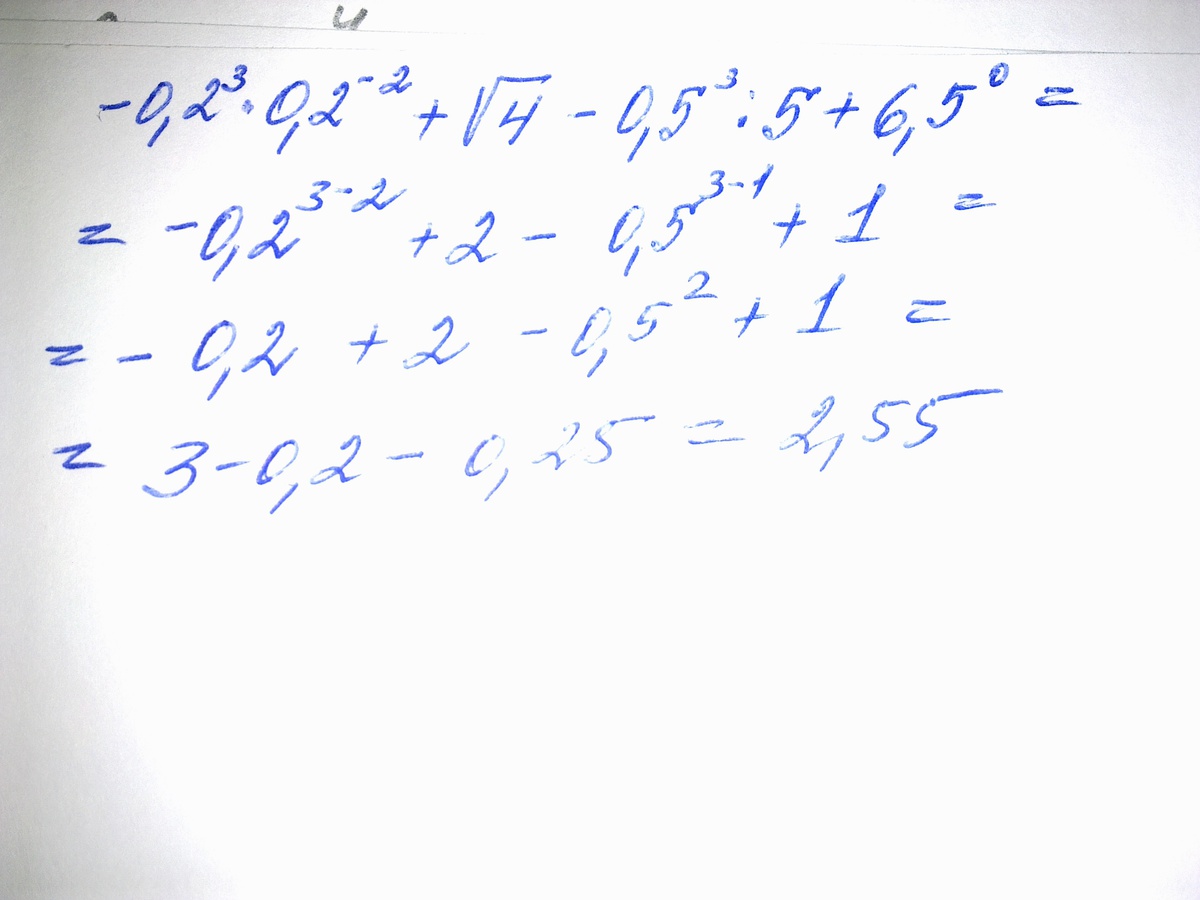 -0,2³·0,2⁻²+√4-0,5³:5+6,5⁰=
= -0,2³⁻²+2-0,5³⁻¹+1=
=-0,2+2-0,5²+1=
=3-0,2-0,25=2,55